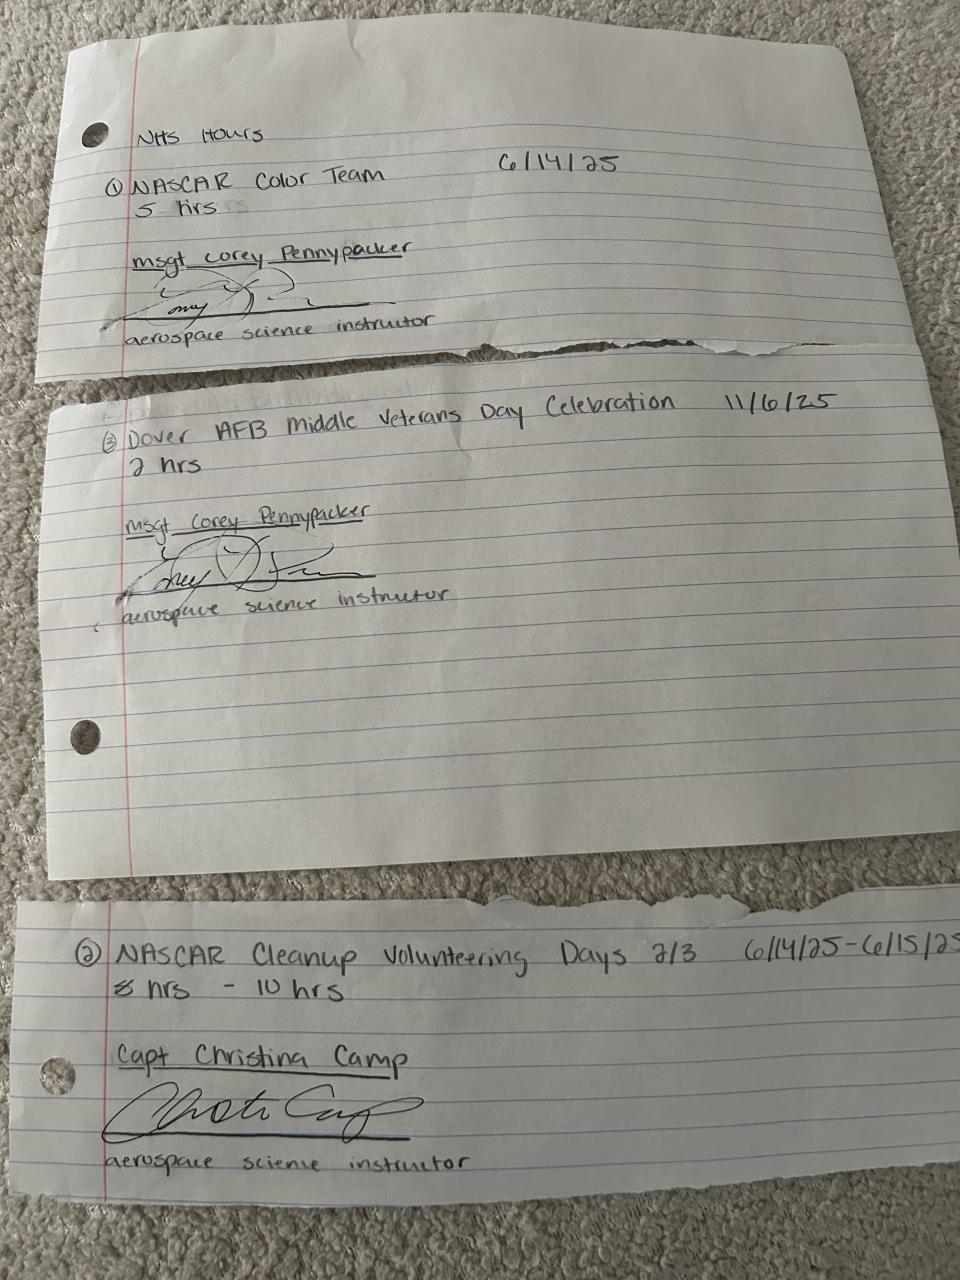 NHS Hours
① NASCAR Color Team 6/14/25
5 hrs
msgt Corey Pennypacker
aerospace science instructor
③ Dover AFB Middle Veterans Day Celebration 11/6/25
2 hrs
msgt Corey Pennypacker
aerospace science instructor
② NASCAR Cleanup Volunteering Days 2/3 6/14/25-6/15/25
8 hrs - 10 hrs
Capt Christina Camp
aerospace science instructor